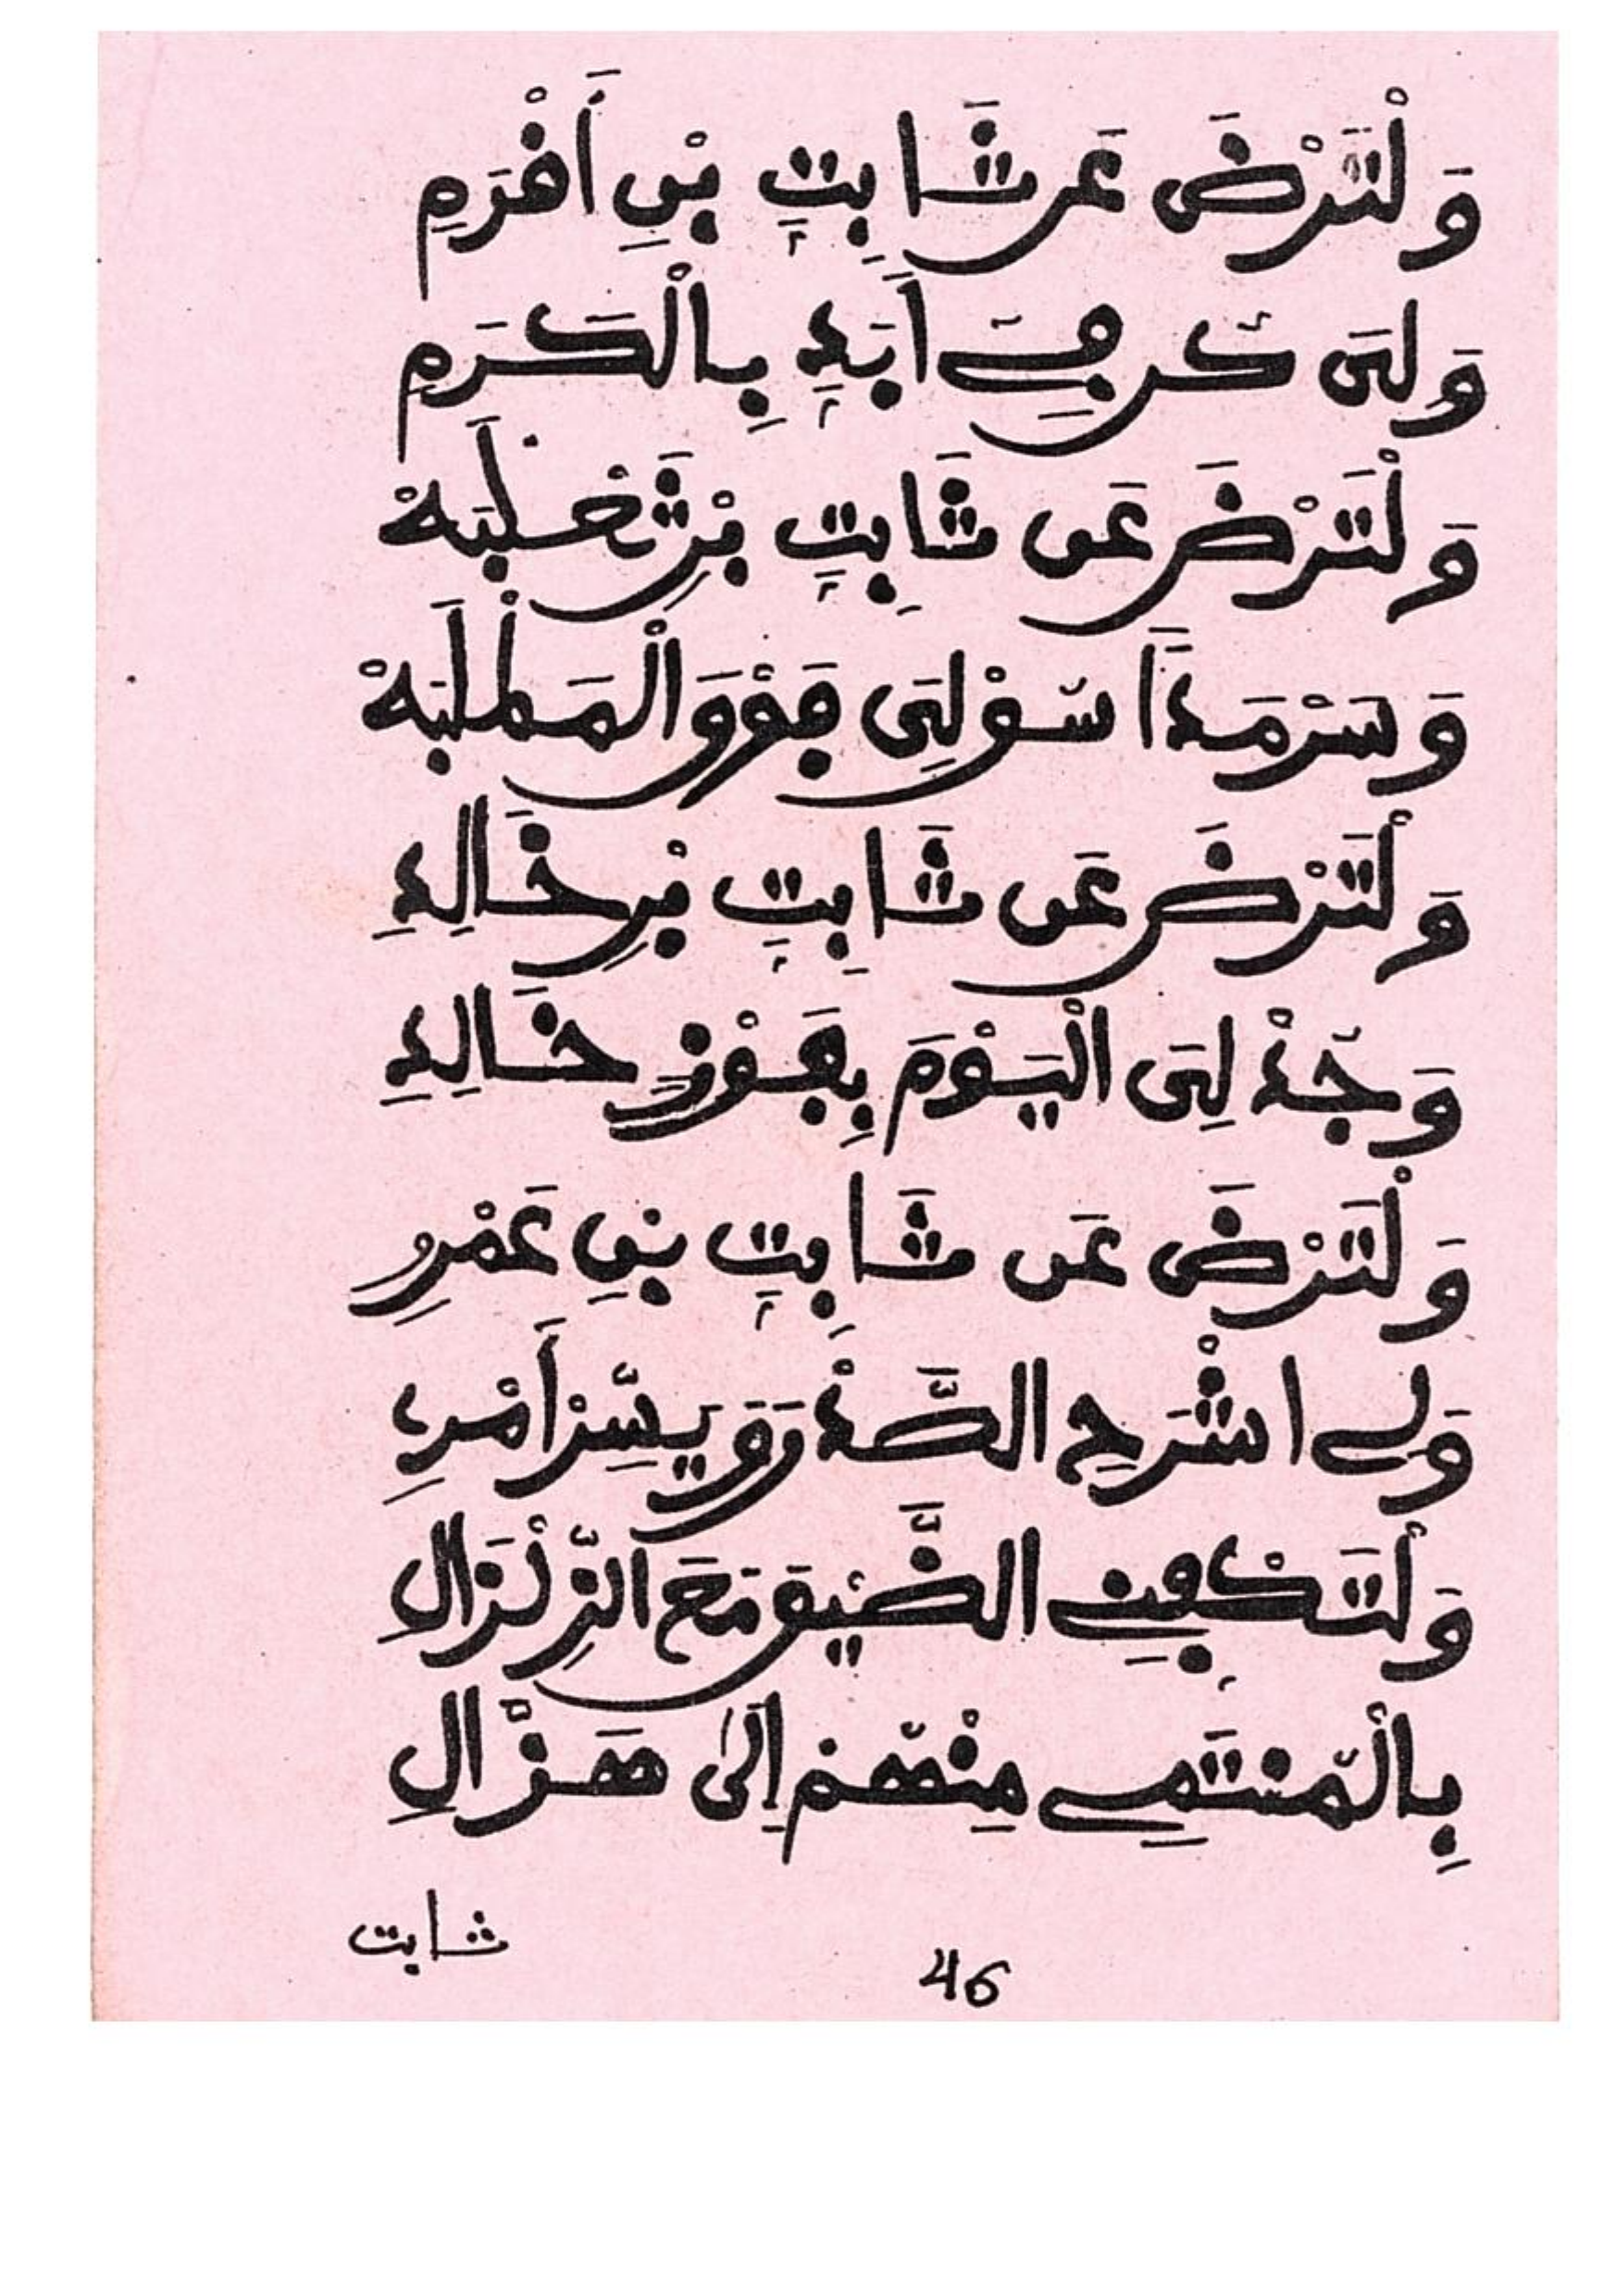 وَلْتَرْضَ عَن ثَابِتٍ بْنِ أَقْرَمِ
وَلِيَ كن فِي أَبَدٍ بِالْكَرَمِ
وَلْتَرْضَ عَن ثَابِتٍ بْنِ ثَعْلَبَهْ
وَسَرْمَدًا سُقْ لِيَ فَوْقَ الْمَطْلَبَهْ
وَلْتَرْضَ عَن ثَابِتٍ بْنِ خَالِدِ
وَجُدْ لِيَ الْيَوْمَ بِفَوْزٍ خَالِدِ
وَلْتَرْضَ عَن ثَابِتٍ بْنِ عَمْرِو
وَلِي اشْرَحِ الصَّدْرَ وَيَسِّرْ أَمْرِي
وَلْتَكْفِنِي الضِّيقَ مَعَ الزِّلْزَالِ
بِالْمُنْتَمِي مِنْهُمْ إِلَى هَزَّالِ
ثابت
46